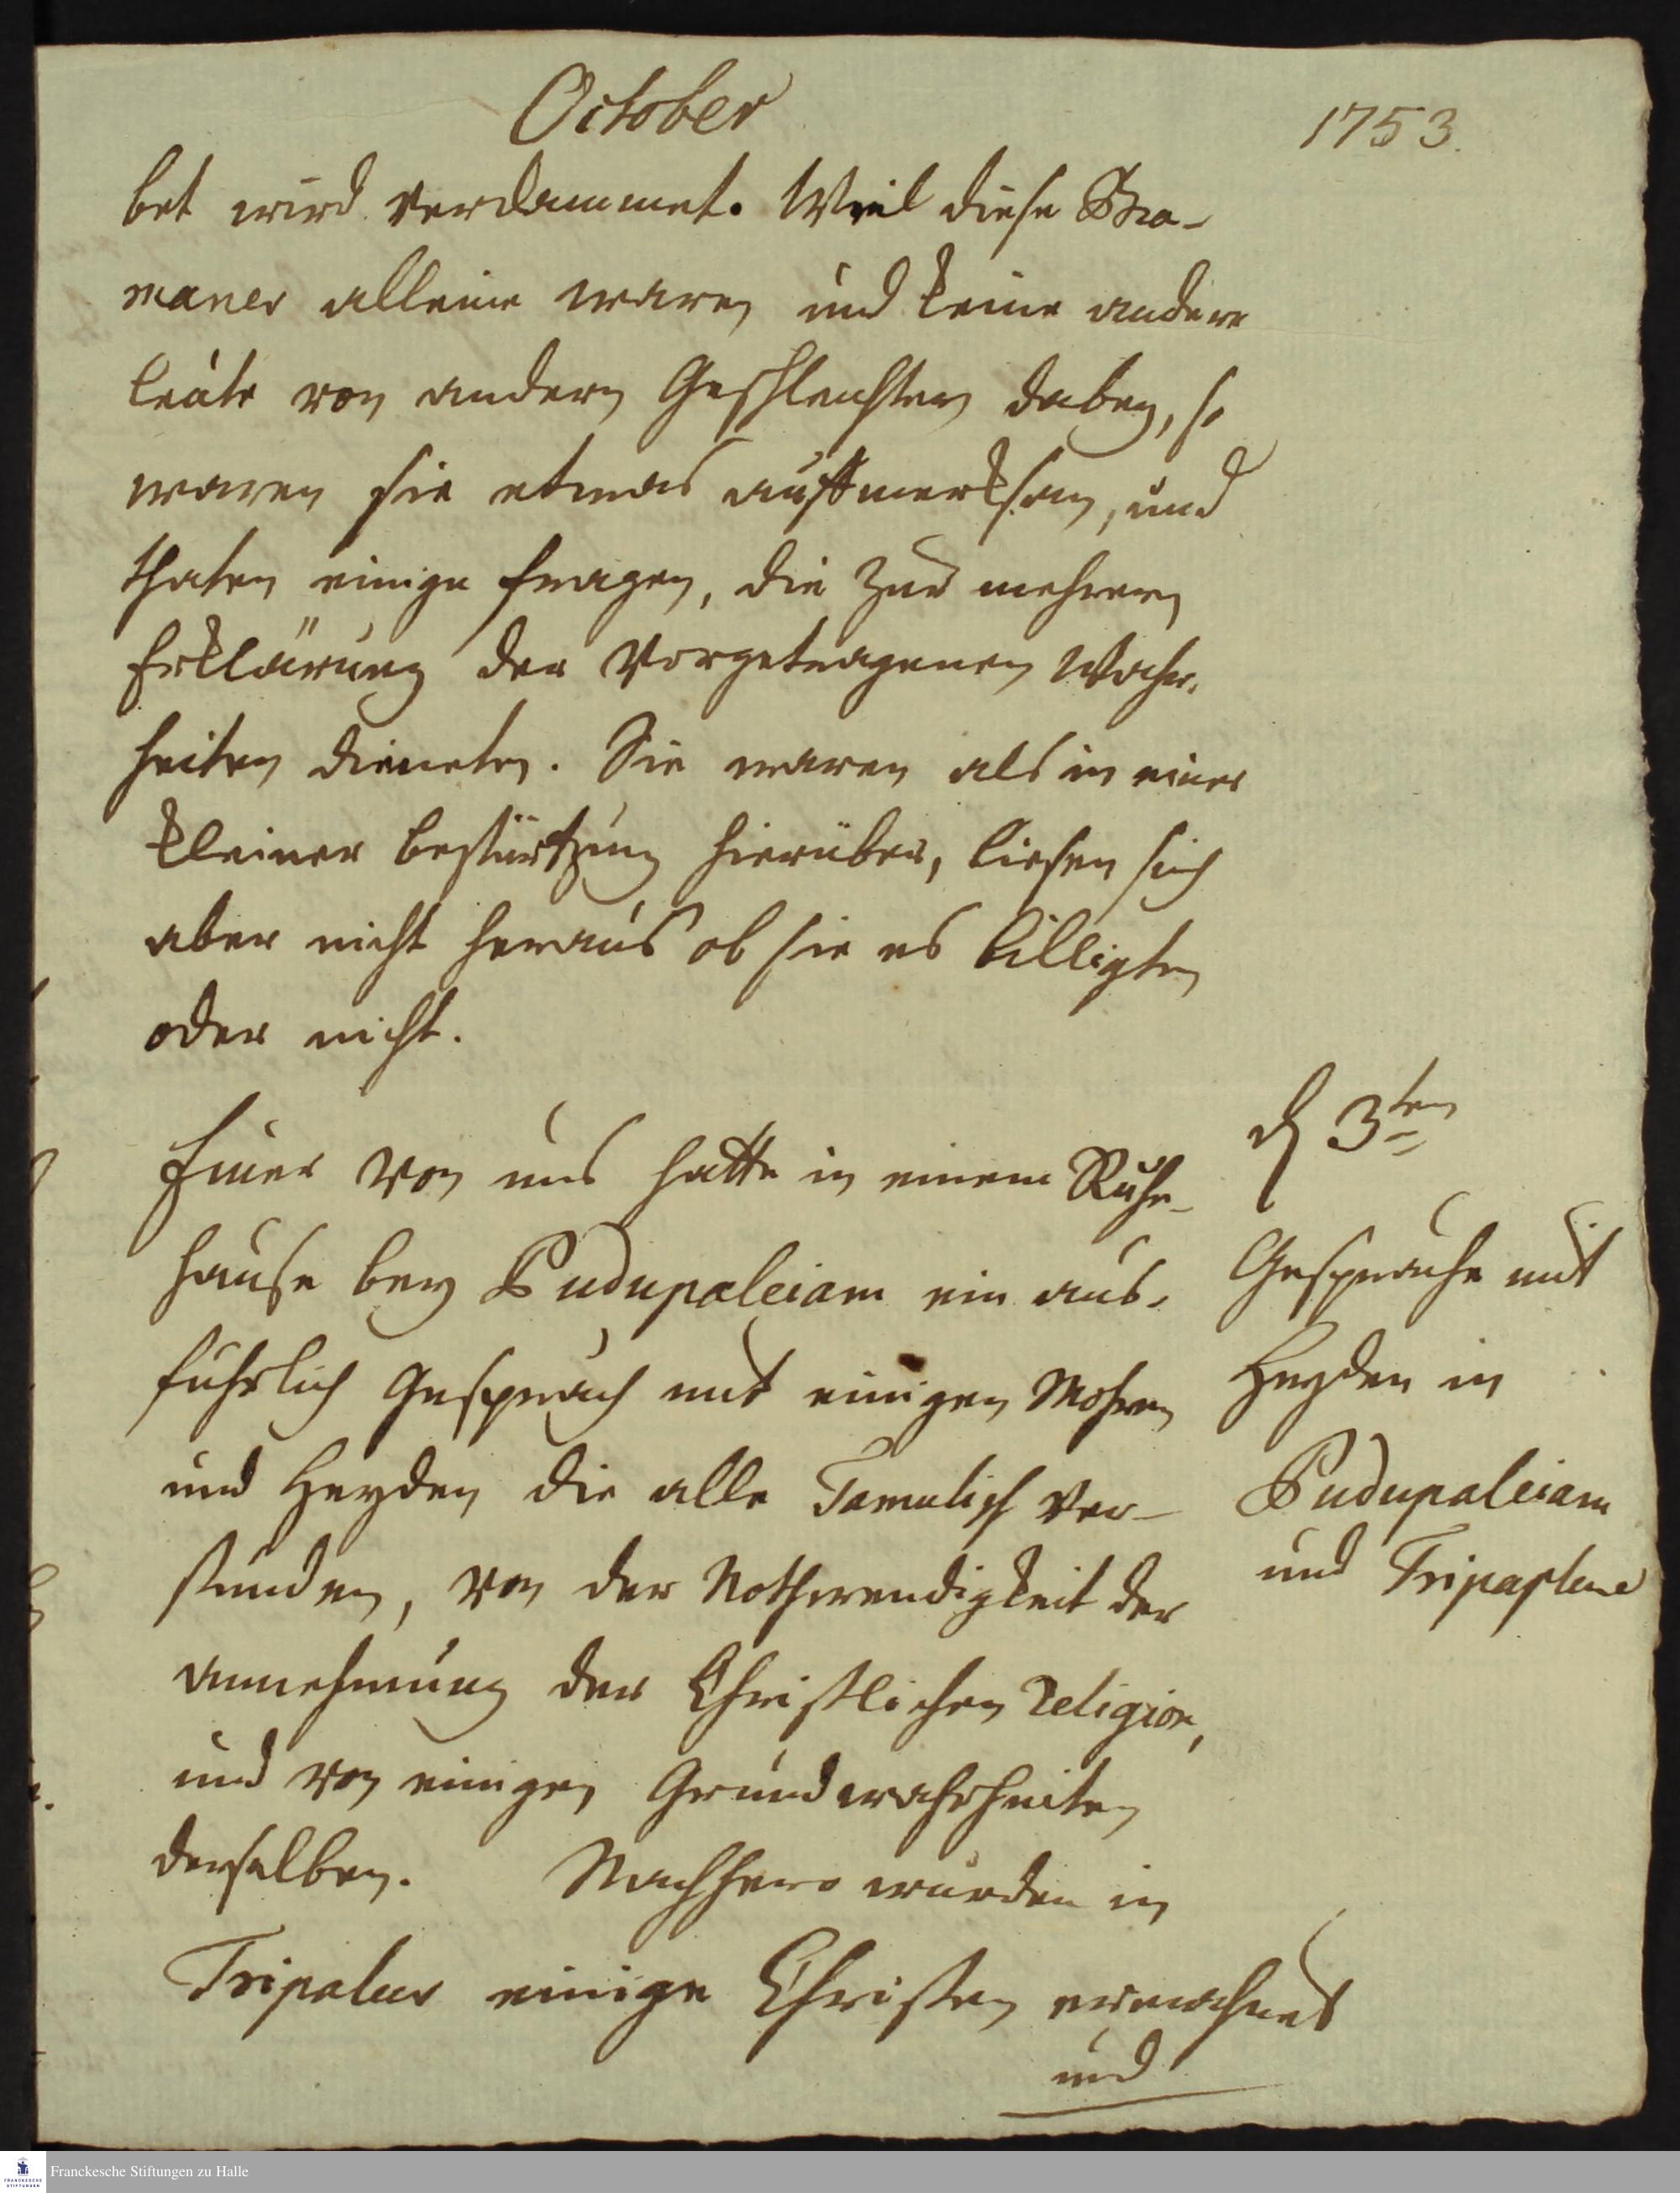 October
1753.
bet wird verdammet. Weil diese Bra-
maner alleine waren und keine andere
leute von andern Geschlechtern dabey, so
waren sie etwas aufmerksam, und
thaten einige Fragen, die zur mehrern
Erklärung der vorgetragenen Wahr-
heiten dieneten. Sie waren als in einer
kleinen bestürtzung hierüber, liesen sich
aber nicht heraus ob sie es billigten
oder nicht.
d 3ten
Einer von uns hatte in einem Ruhe-
hause bey Pudupaleiam ein aus-
führlich Gespräch mit einigen Mohren
und Heyden die alle Tamulisch ver-
stunden, von der Nothwendigkeit der
annehmung der Christlichen Religion,
und von einigen Grundwahrheiten
derselben. Nachhero wurden in
Tripalur einige Christen ermahnet
und
Gespräche mit
Heyden in
Pudupaleiam
und
Franckesche Stiftungen zu Halle